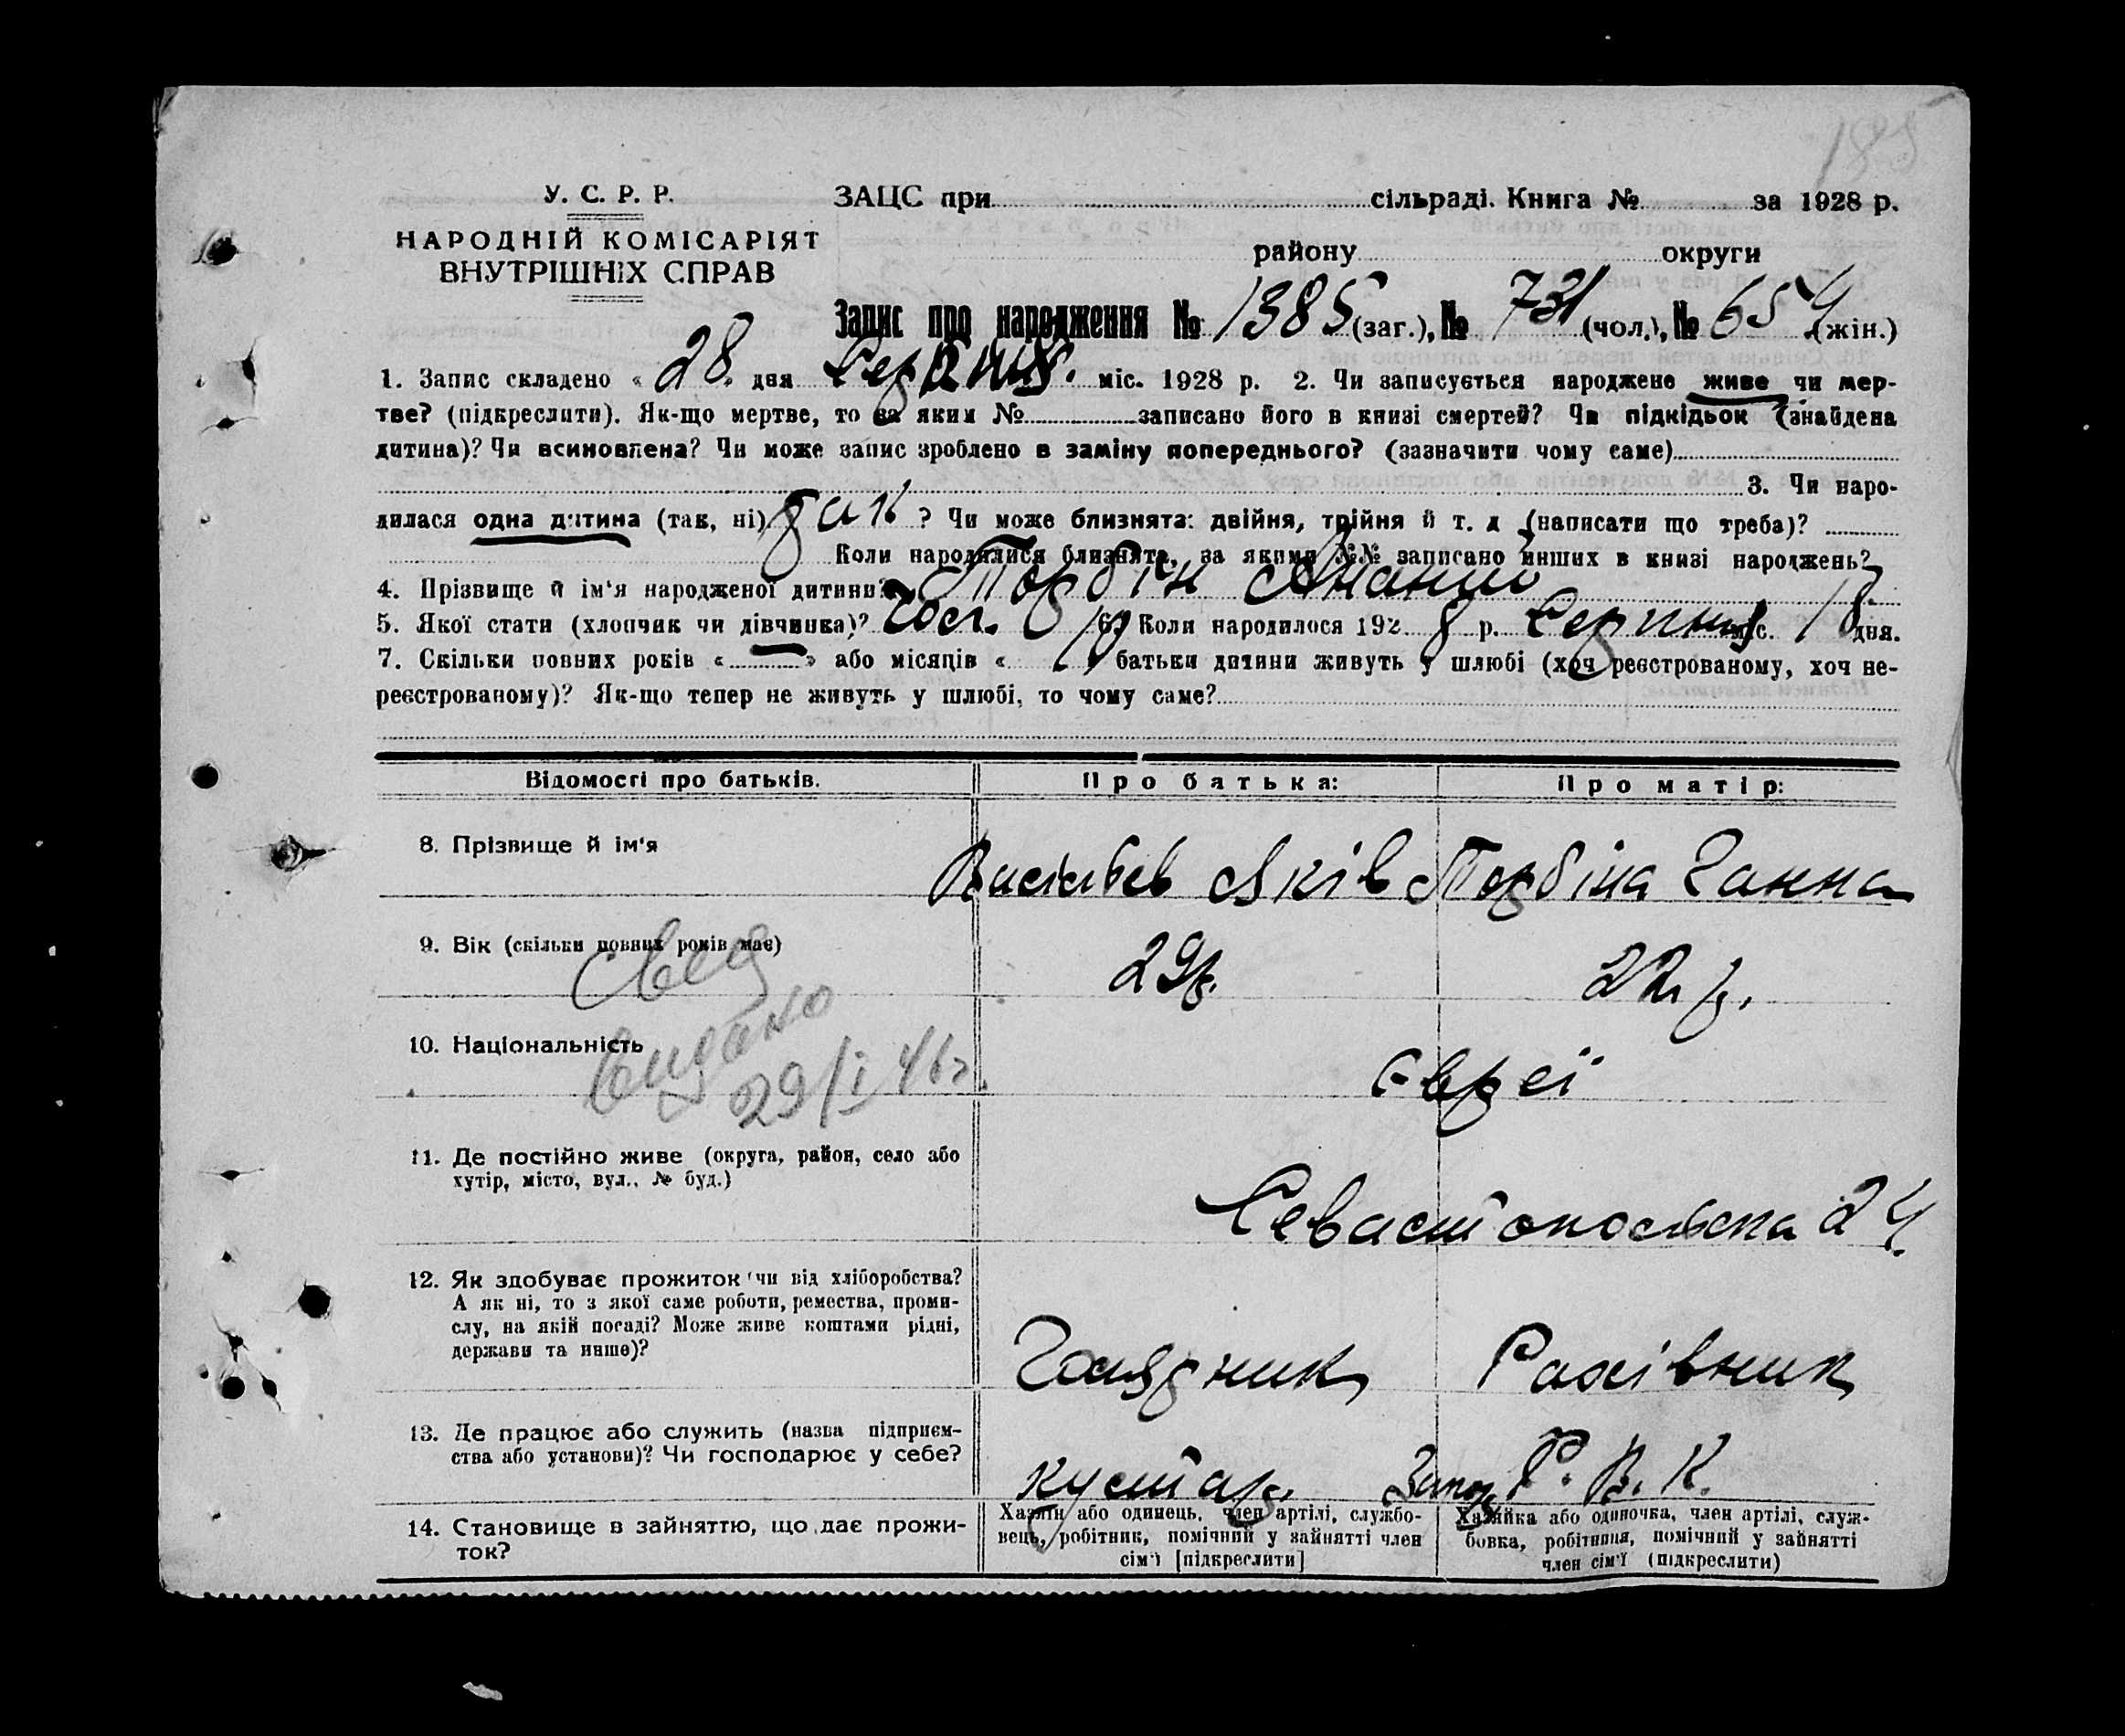 185
У. С. Р. Р.
НАРОДНІЙ КОМІСАРІЯТ
ВНУТРІШНІХ СПРАВ
ЗАЦС при сільраді. Книга № за 1928 р.
району округи
Запис про народження № 1385 (заг.), № 731 (чол.), № 654 (жін.)
1. Запис складено « 28 » дня Серпня міс. 1928 р. 2. Чи записується народжене живе чи мер-
тве? (підкреслити). Як-що мертве, то за яким № записано його в книзі смертей? Чи підкідьок (знайдена
дитина)? Чи всиновлена? Чи може запис зроблено в заміну попереднього? (зазначити чому саме)
3. Чи наро-
дилася одна дитина (так, ні) так ? Чи може близнята: двійня, трійня й т. д (написати що треба)?
Коли народилися близнята, за якими №№ записано инших в книзі народжень?
4. Прізвище й ім'я народженої дитини? Торбін
5. Якої стати (хлопчик чи дівчинка)? 6. Коли народилося 192 8 р. Серпня міс. 18 дня.
7. Скільки повних років « — » або місяців « » батьки дитини живуть у шлюбі (хоч реєстрованому, хоч не-
реєстрованому)? Як-що тепер не живуть у шлюбі, то чому саме?
Відомості про батьків. Про батька: Про матір:
8. Прізвище й ім'я Васильєв Яків Торбіна Ганна
9. Вік (скільки повних років має) 29 р. 22 р.
10. Національність Євреї
видано
29/I 46 г.
11. Де постійно живе (округа, район, село або
хутір, місто, вул., № буд.)
Севастопольска 24
12. Як здобуває прожиток (чи від хліборобства?
А як ні, то з якої саме роботи, ремества, проми-
слу, на якій посаді? Може живе коштами рідні,
держави та инше)?
Рахівник
13. Де працює або служить (назва підприєм-
ства або установи)? Чи господарює у себе?
кустарь Р. В. К.
14. Становище в зайняттю, що дає прожи-
ток?
Хазяїн або одинець, член артілі, службо-
вець, робітник, помічний у зайнятті член
сім'ї [підкреслити]
Хазяйка або одиночка, член артілі, служ-
бовка, робітниця, помічний у зайнятті
член сім'ї (підкреслити)